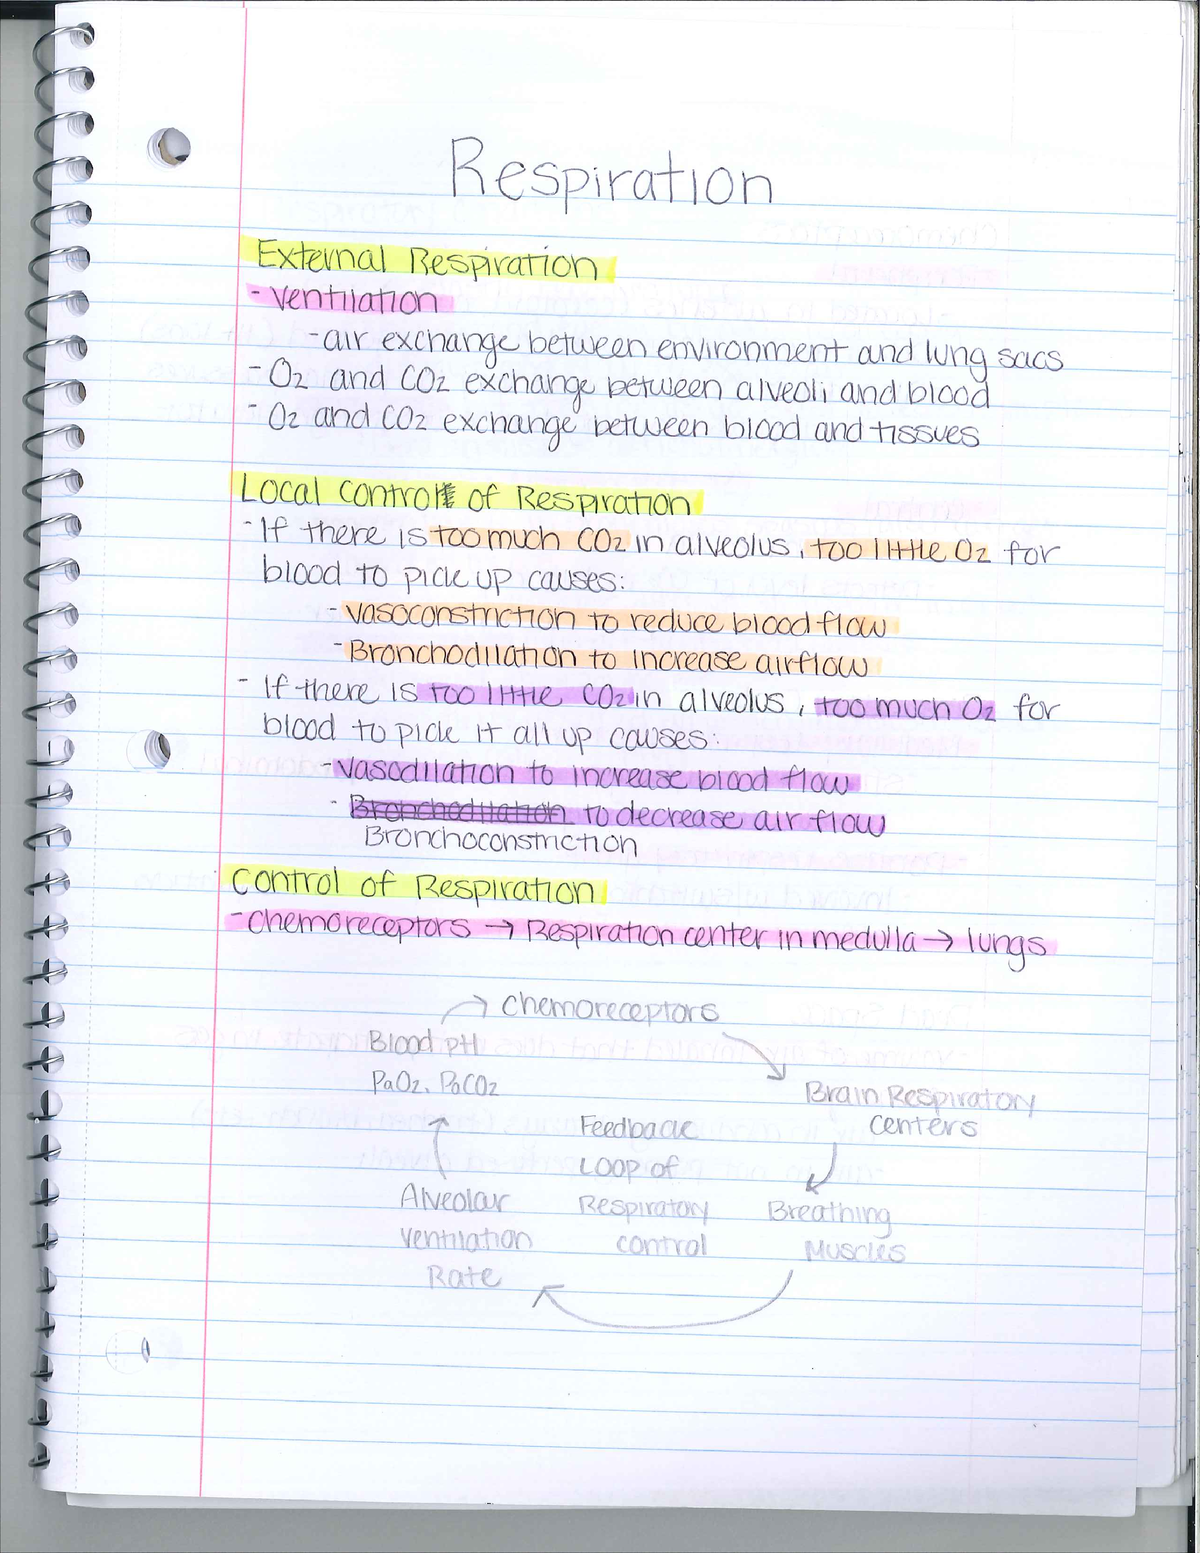 Respiration
External Respiration
- Ventilation
- air exchange between environment and lung sacs
- O2 and CO2 exchange between alveoli and blood
- O2 and CO2 exchange between blood and tissues
Local Control of Respiration
- If there is too much CO2 in alveolus, too little O2 for
blood to pick up causes:
- Vasoconstriction to reduce blood flow
- Bronchodilation to increase airflow
- If there is too little CO2 in alveolus, too much O2 for
blood to pick it all up causes:
- Vasodilation to increase blood flow
- Bronchodilation to decrease air flow
Bronchoconstriction
Control of Respiration
- Chemoreceptors → Respiration center in medulla → lungs
Chemoreceptors
Blood pH
PaO2, PaCO2
Brain Respiratory
Centers
Feedback
Loop of
Respiratory
control
Breathing
Muscles
Alveolar
Ventilation
Rate